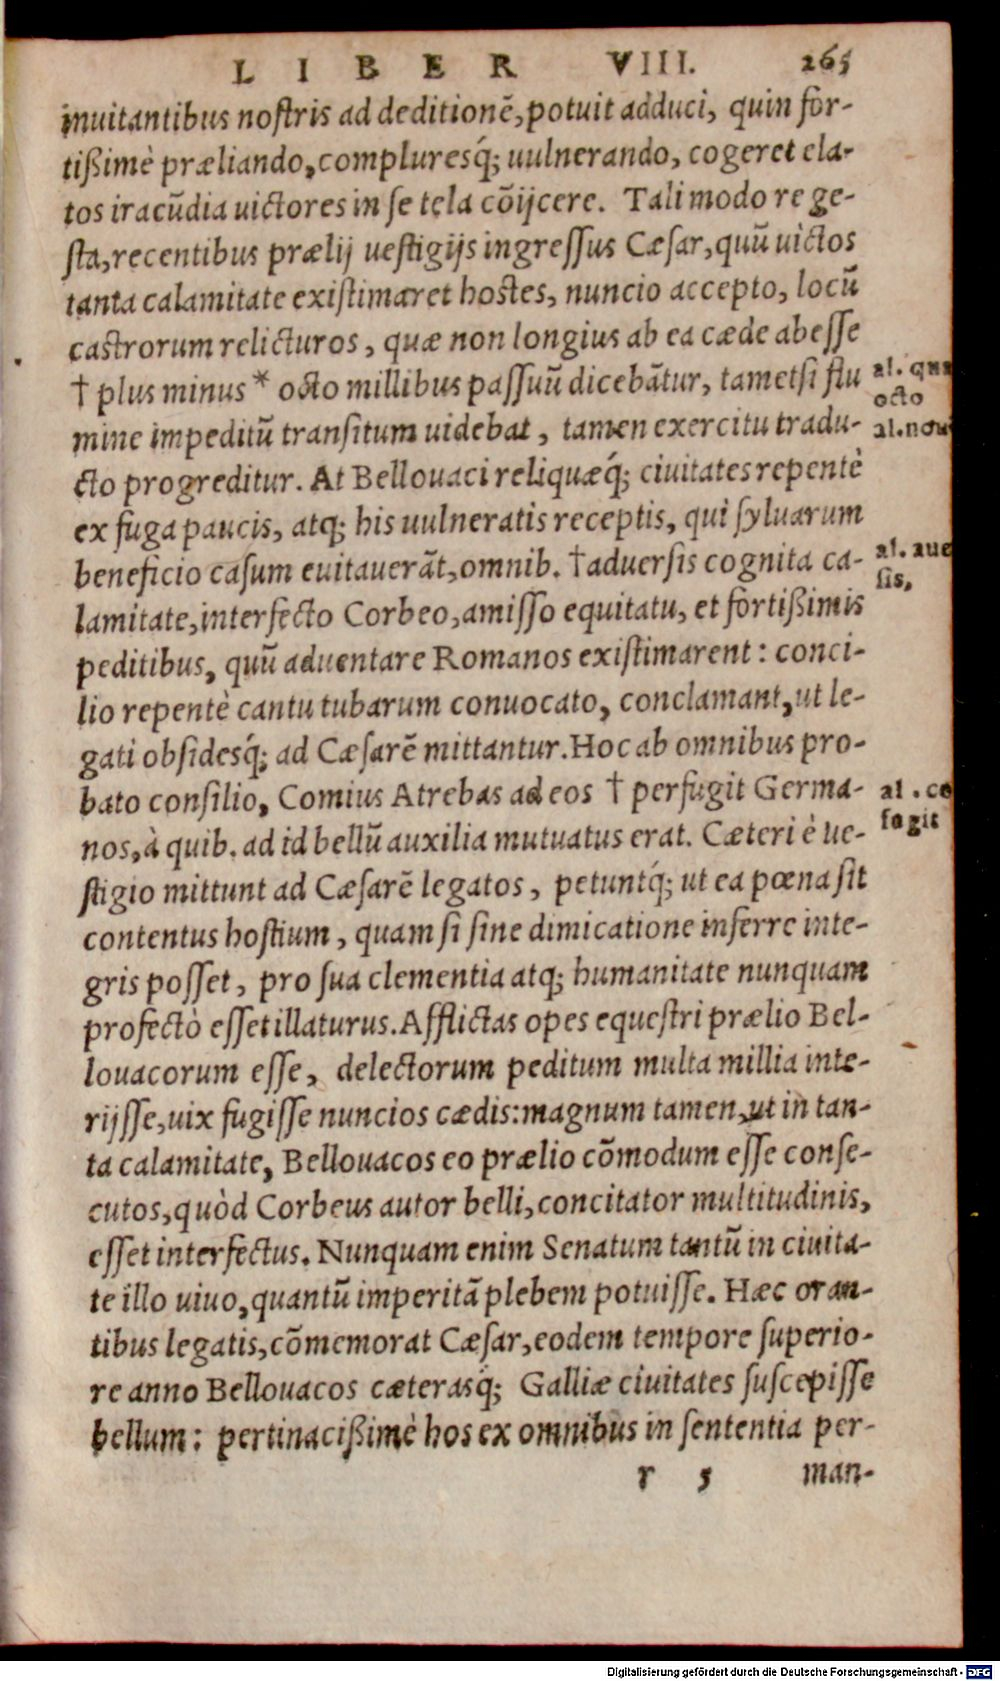 LIBER VIII. 265
inuitantibus nostris ad deditionē, potuit adduci, quin for-
tißimè præliando, compluresq́; uulnerando, cogeret ela-
tos iracūdia uictores in se tela cōijcere. Tali modo re ge-
sta, recentibus prælij uestigijs ingressus Cæsar, quū uictos
tanta calamitate existimaret hostes, nuncio accepto, locū
castrorum relicturos, quæ non longius ab ea cæde abesse
† plus minus * octo millibus passuū dicebātur, tametsi flu
mine impeditū transitum uidebat, tamen exercitu tradu-
cto progreditur. At Bellouaci reliquæq́; ciuitates repentè
ex fuga paucis, atq; his uulneratis receptis, qui syluarum
beneficio casum euitauerāt, omnib. † aduersis cognita ca-
lamitate, interfecto Corbeo, amisso equitatu, et fortißimis
peditibus, quū aduentare Romanos existimarent: conci-
lio repentè cantu tubarum conuocato, conclamant, ut le-
gati obsidesq́; ad Cæsarē mittantur. Hoc ab omnibus pro-
bato consilio, Comius Atrebas ad eos † perfugit Germa-
nos, à quib. ad id bellū auxilia mutuatus erat. Cæteri è ue-
stigio mittunt ad Cæsarē legatos, petuntq́; ut ea pœna sit
contentus hostium, quam si sine dimicatione inferre inte-
gris posset, pro sua clementia atq; humanitate nunquam
profectò esset illaturus. Afflictas opes equestri prælio Bel-
louacorum esse, delectorum peditum multa millia inte-
rijsse, uix fugisse nuncios cædis: magnum tamen, ut in tan-
ta calamitate, Bellouacos eo prælio cōmodum esse conse-
cutos, quòd Corbeus autor belli, concitator multitudinis,
esset interfectus. Nunquam enim Senatum tantū in ciuita-
te illo uiuo, quantū imperitā plebem potuisse. Hæc oran-
tibus legatis, cōmemorat Cæsar, eodem tempore superio-
re anno Bellouacos cæterasq́; Galliæ ciuitates suscepisse
bellum: pertinacißimè hos ex omnibus in sententia per-
r 5 man-
al. qua
octo
al. nou
al. aue
sis,
al. co
fugit
Digitalisierung gefördert durch die Deutsche Forschungsgemeinschaft - DFG